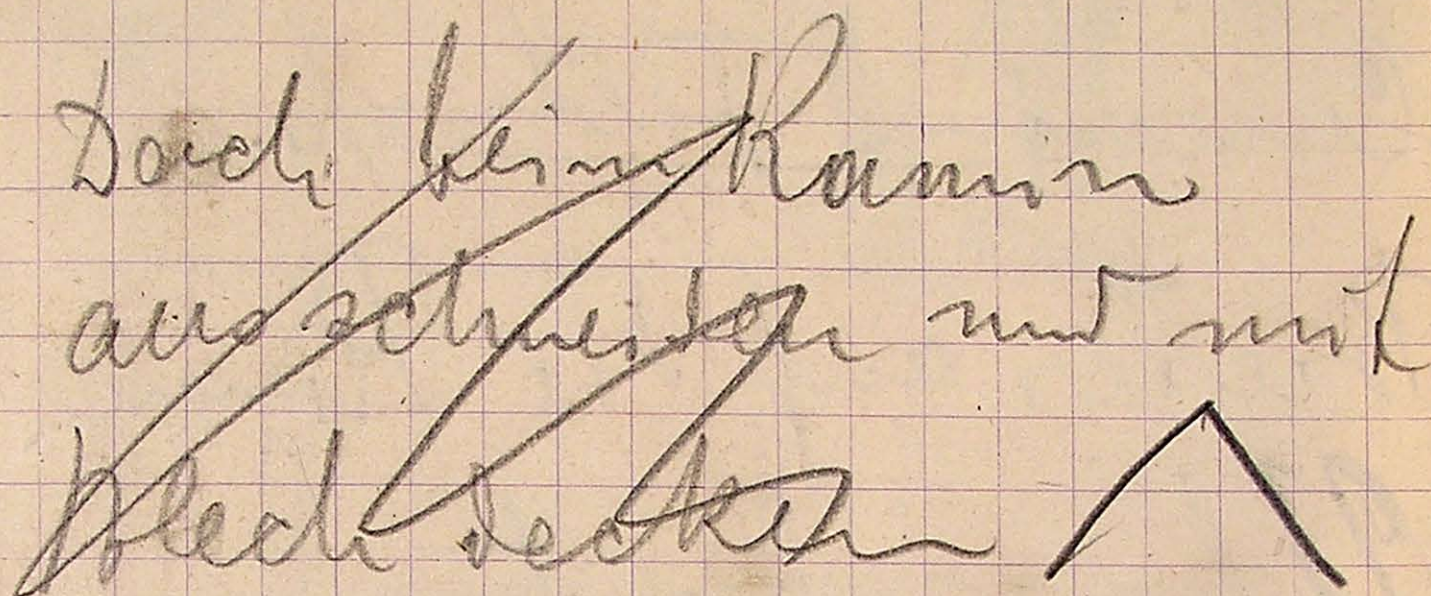 Dach beim Kamin
ausschneiden und mit
Blech decken